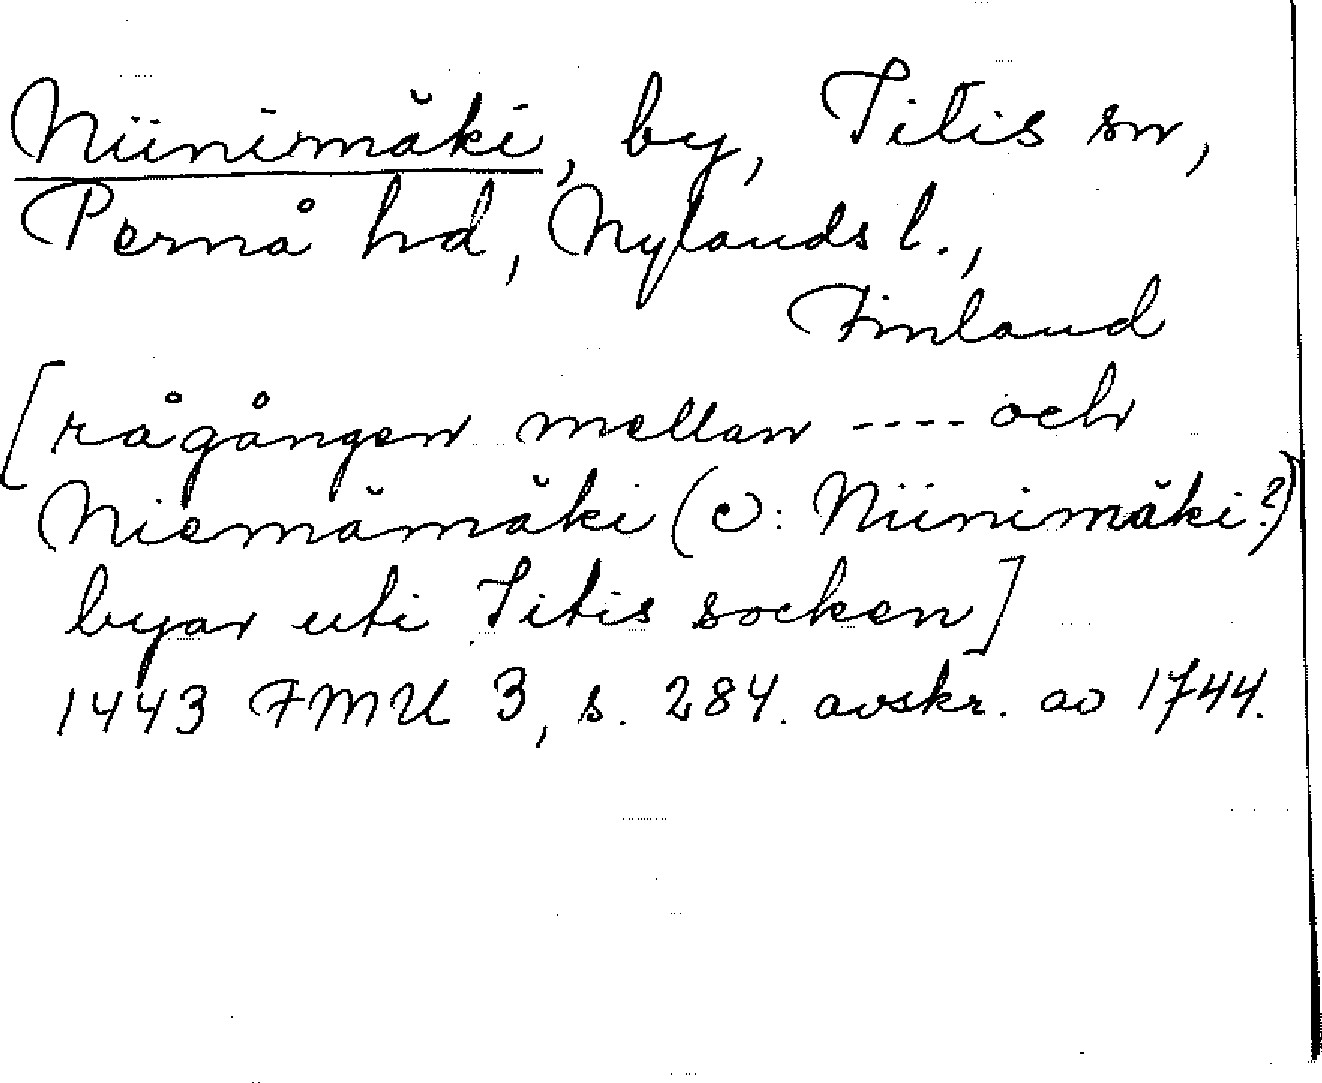 Niinimäki, by, Titis sn,
Pernå hd, Nylands l.,
Finland
[rågången mellan ---- och
Niemämäki (ɔ: Niinimäki?)
byar uti Titis socken]
1443 FMU 3, s. 284. avskr. av 1744.